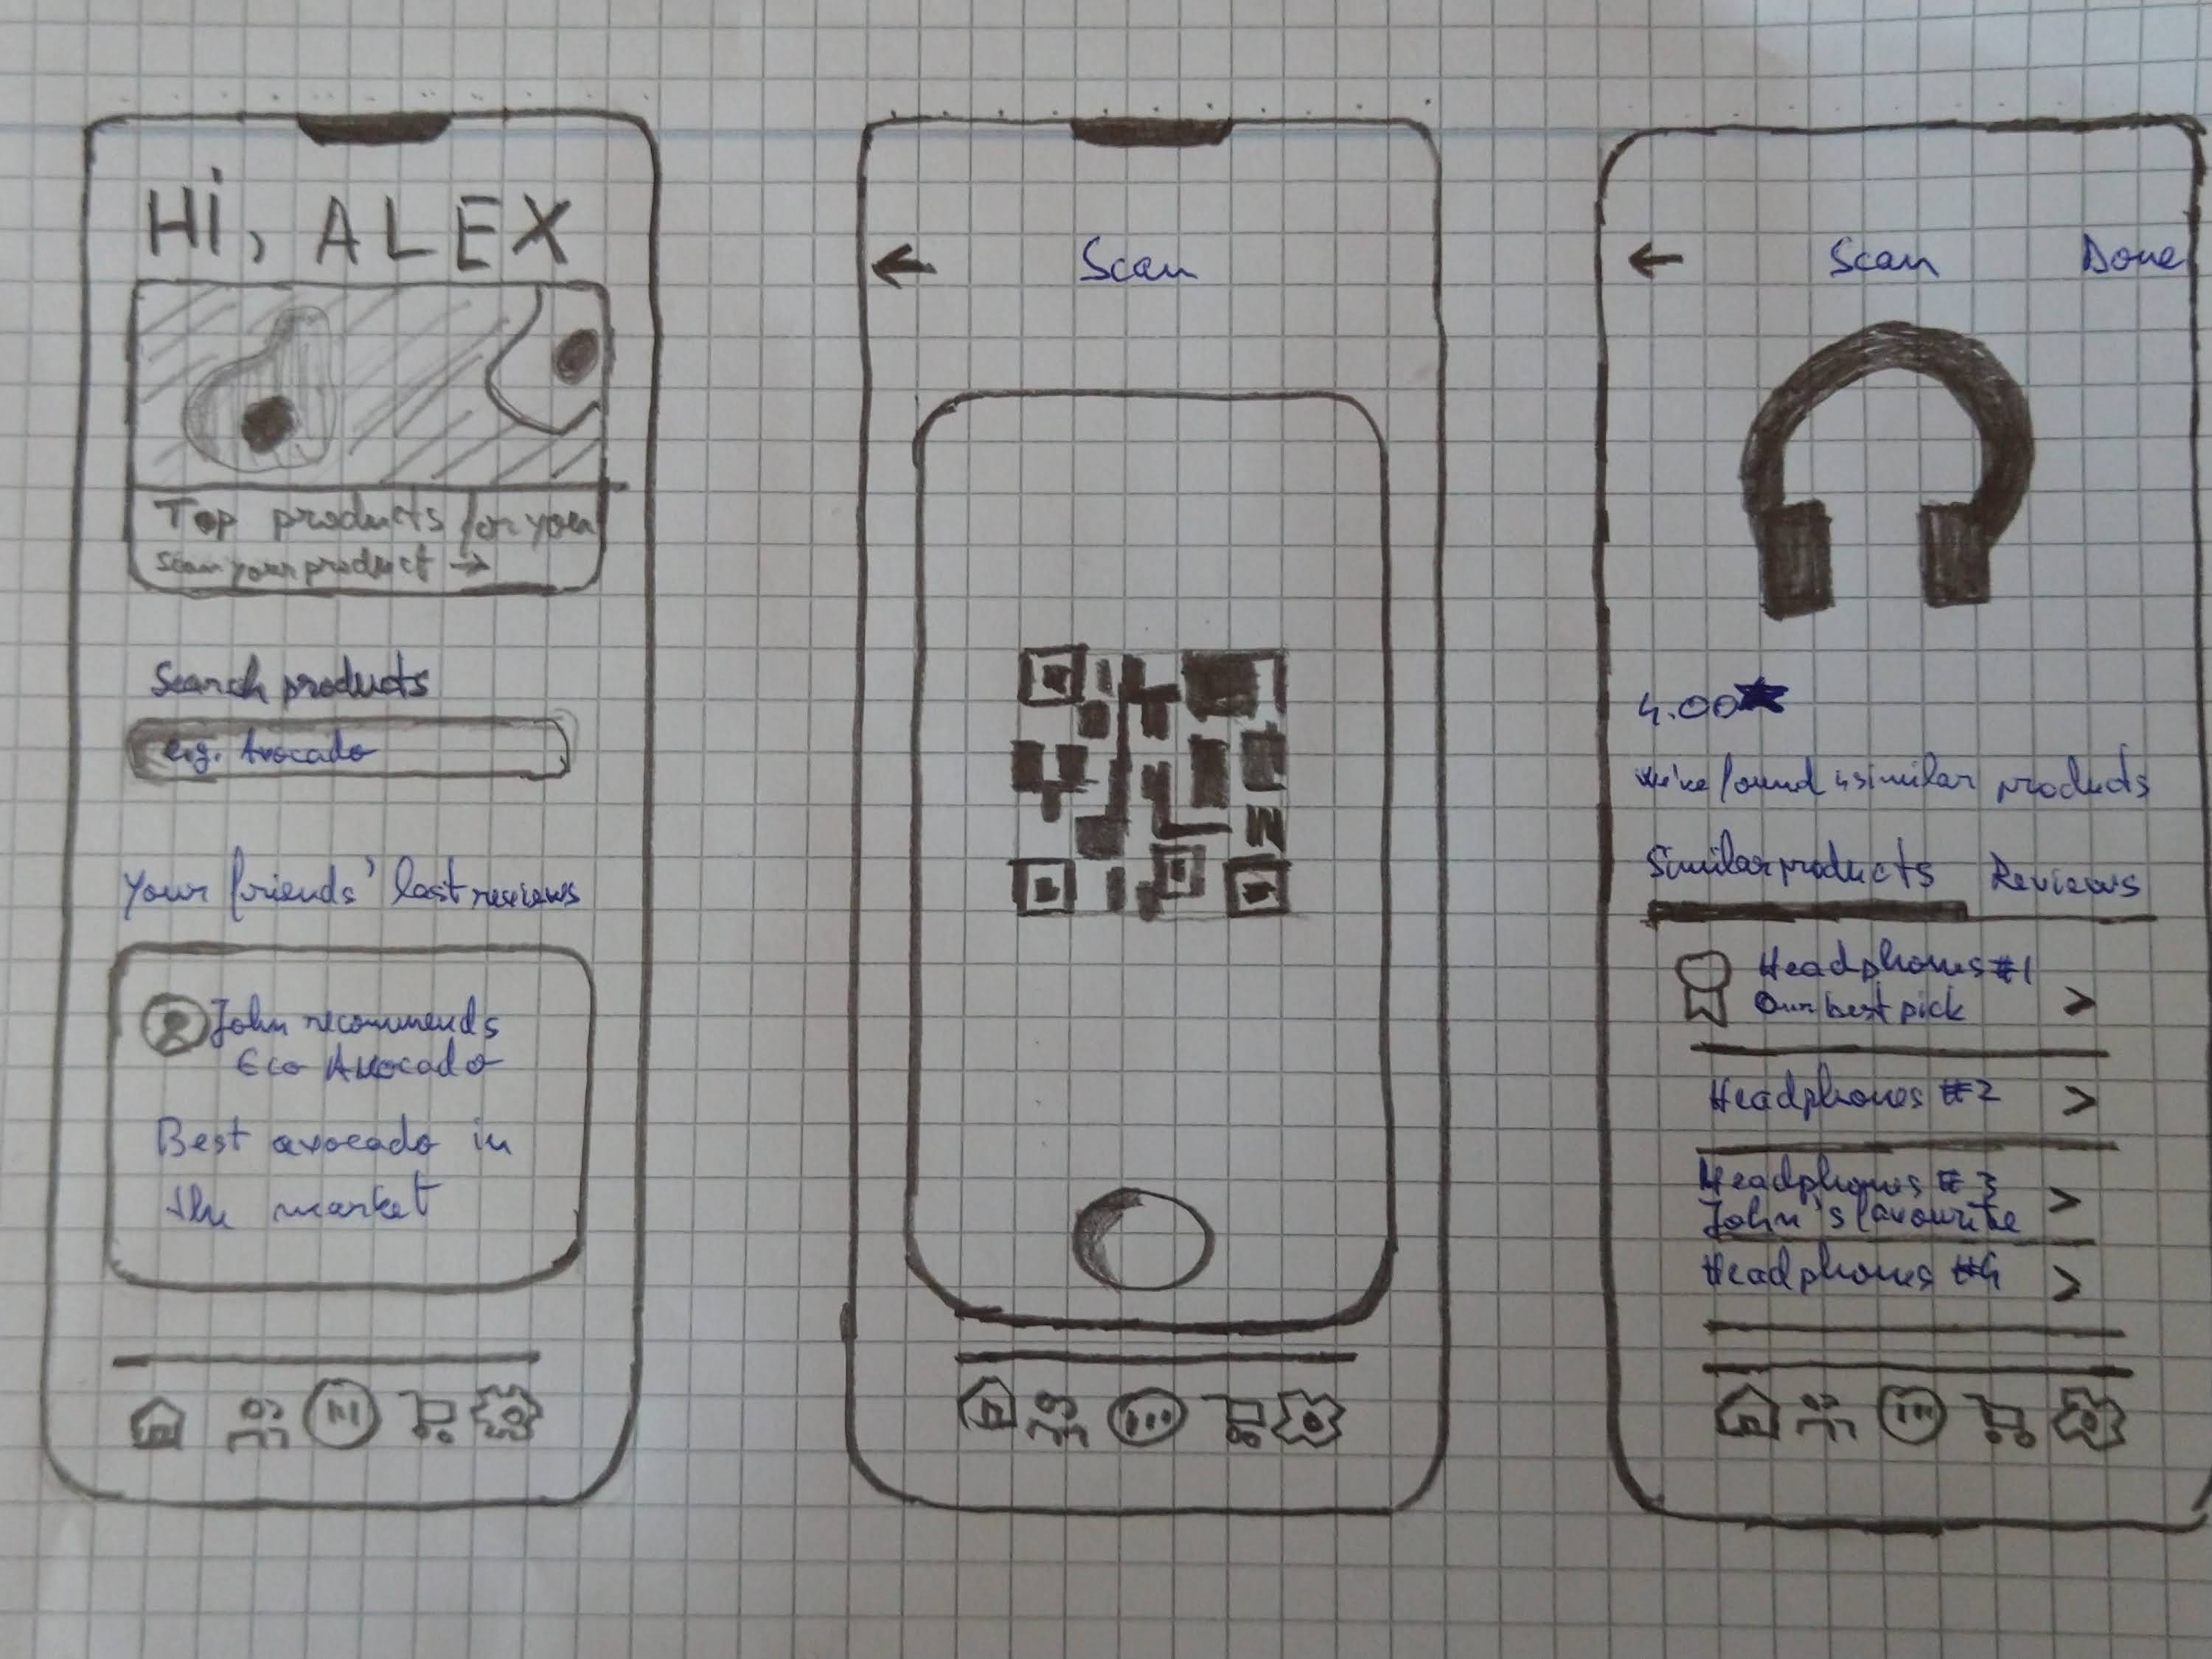 Hi, ALEX
Top products for you
Scan your product →
Search products
e.g. Avocado
Your friends' last reviews
John recommends
Eco Avocado
Best avocado in
the market
← Scan
← Scan Done
4.00★
We've found 4 similar products
Similar products Reviews
Headphones #1
Our best pick >
Headphones #2 >
Headphones #3
John's favourite >
Headphones #4 >